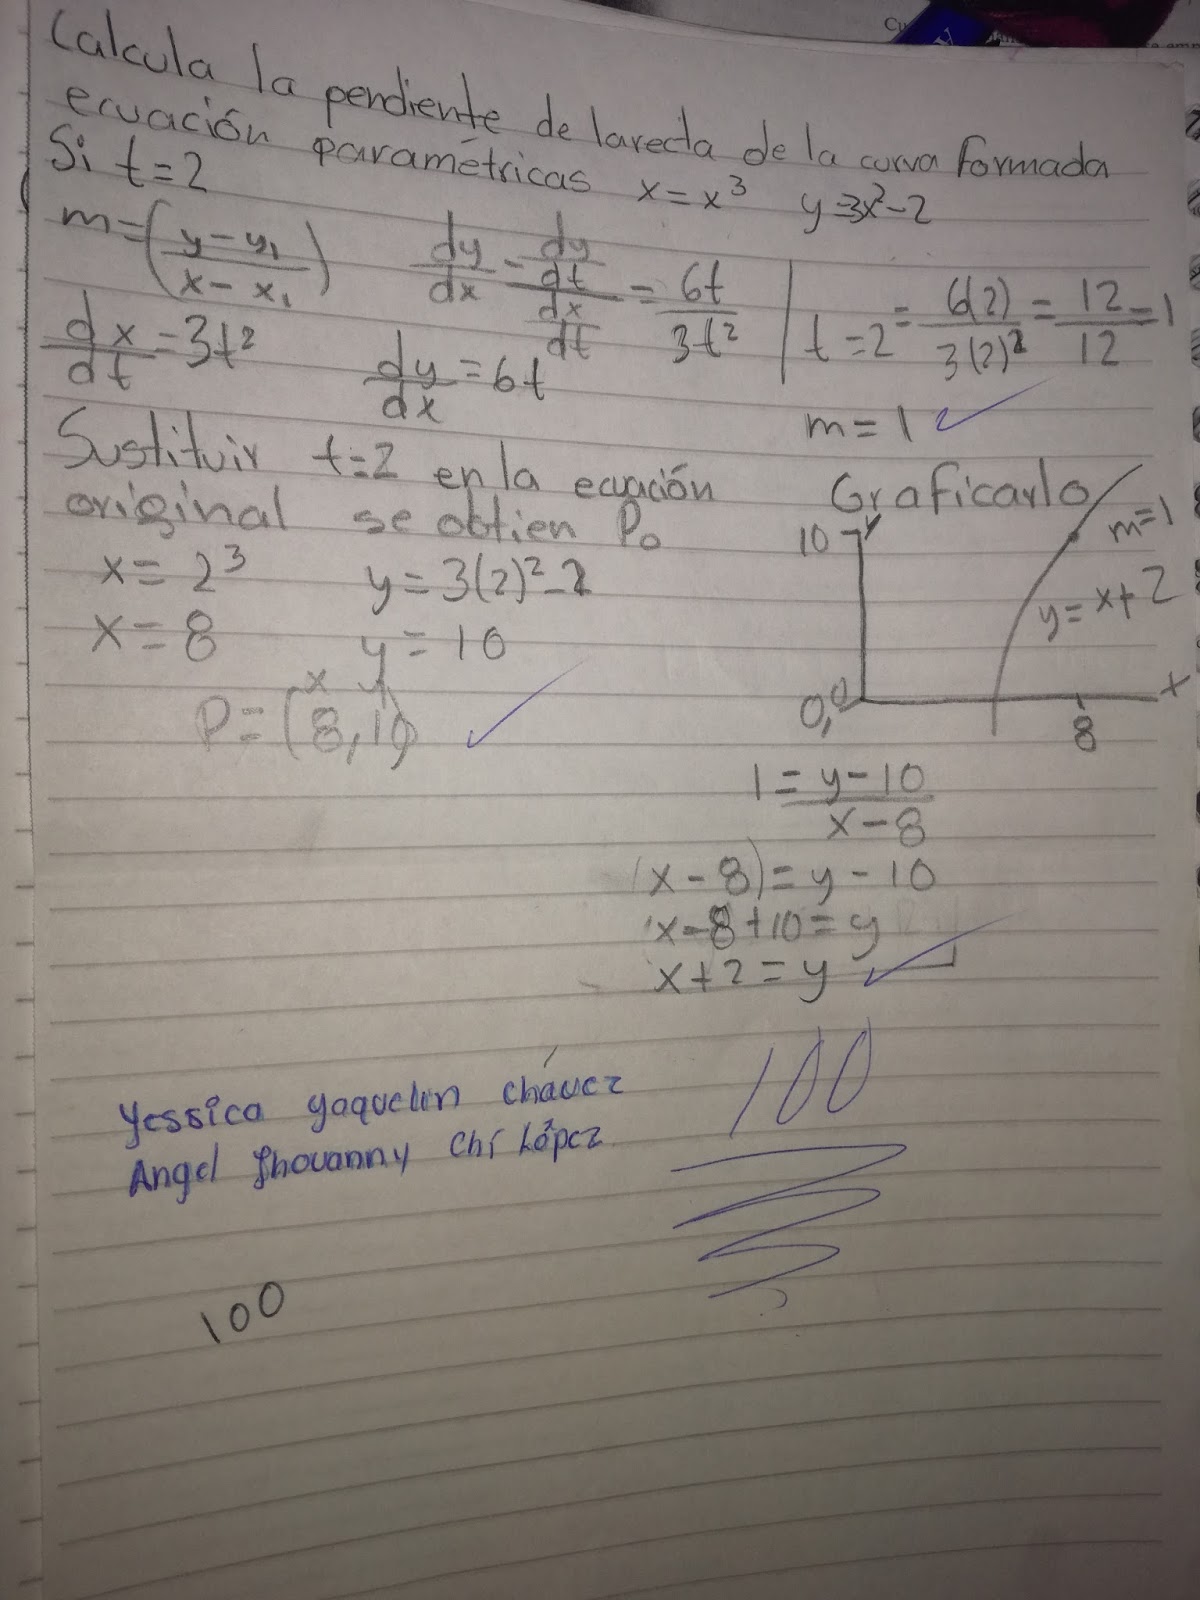 Calcula la pendiente de la recta de la curva formada
ecuación paramétricas x=x³ y=3x²-2
Si t=2
m=(y-y₁/x-x₁) dy/dx = dy/dt/dx/dt = 6t/3t² | t=2 = 6(2)/3(2)² = 12/12 = 1
dx/dt = 3t² dy/dx = 6t
m=1
Sustituir t=2 en la ecuación
original se obtien P₀
x=2³ y=3(2)²-2
x=8 y=10
x y
P=(8,10)
Graficarlo
10 y
m=1
y=x+2
0,0 x
8
1=y-10/x-8
(x-8)=y-10
x-8+10=y
x+2=y
100
Yessica Yaquelin Chávez
Angel Jhovanny Chí López
100